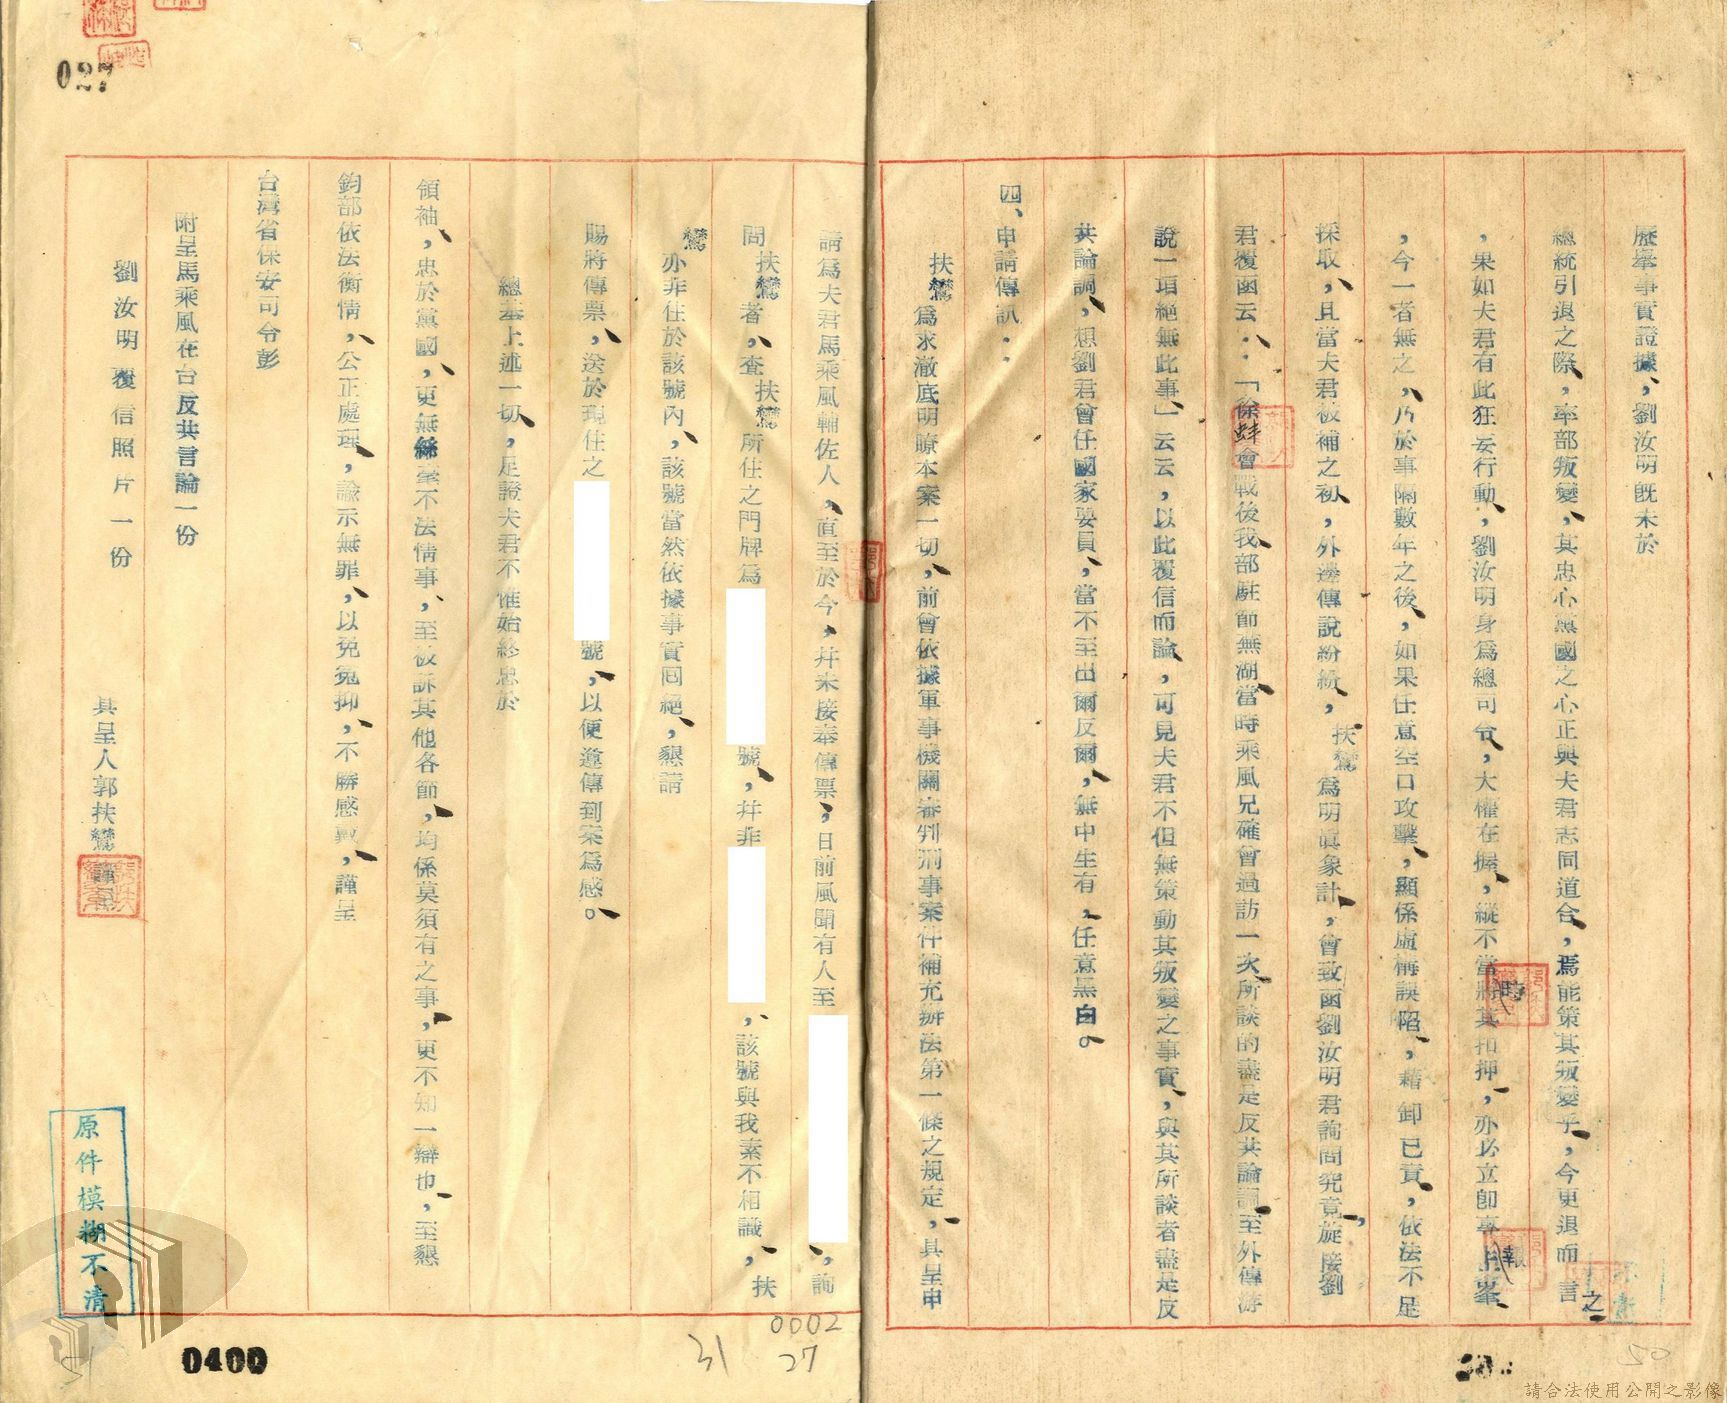 歷舉事實證據，劉汝明既未於
總統引退之際，率部叛變，其忠心黨國之心正與夫君志同道合，焉能策其叛變乎，今更退而言之
，果如夫君有此狂妄行動，劉汝明身爲總司令，大權在握，縱不當時將其扣押，亦必立卽專報上峯
，今一者無之，乃於事隔數年之後，如果任意空口攻擊，顯係虛構誤陷，藉卸已責，依法不足
採取，且當夫君被補之初，外邊傳說紛紛，扶鸞爲明眞象計，曾致函劉汝明君詢問究竟，旋接劉
君覆函云：「徐蚌會戰後我部駐節蕪湖當時乘風兄確曾過訪一次所談的盡是反共論調至外傳游
說一項絕無此事」云云，以此覆信而論，可見夫君不但無策動其叛變之事實，與其所談者盡是反
共論調，想劉君曾任國家要員，當不至出爾反爾，無中生有，任意黑白。
四、申請傳訊：
扶鸞爲求澈底明瞭本案一切，前曾依據軍事機關審判刑事案件補充辦法第一條之規定，具呈申
請爲夫君馬乘風輔佐人，直至於今，幷未接奉傳票，日前風聞有人至，詢
問扶鸞者，查扶鸞所住之門牌爲號，幷非，該號與我素不相識，扶
鸞亦非住於該號內，該號當然依據事實回絕，懇請
賜將傳票，送於現住之號，以便遵傳到案爲感。
總基上述一切，足證夫君不惟始終忠於
領袖，忠於黨國，更無絲毫不法情事，至被訴其他各節，均係莫須有之事，更不知一辯也，至懇
鈞部依法衡情，公正處理，諭示無罪，以免冤抑，不勝感戴，謹呈
台灣省保安司令彭
附呈馬乘風在台反共言論一份
劉汝明覆信照片一份
具呈人郭扶鸞
原件模糊不清
027
0400
0002
31 27
50
請合法使用公開之影像